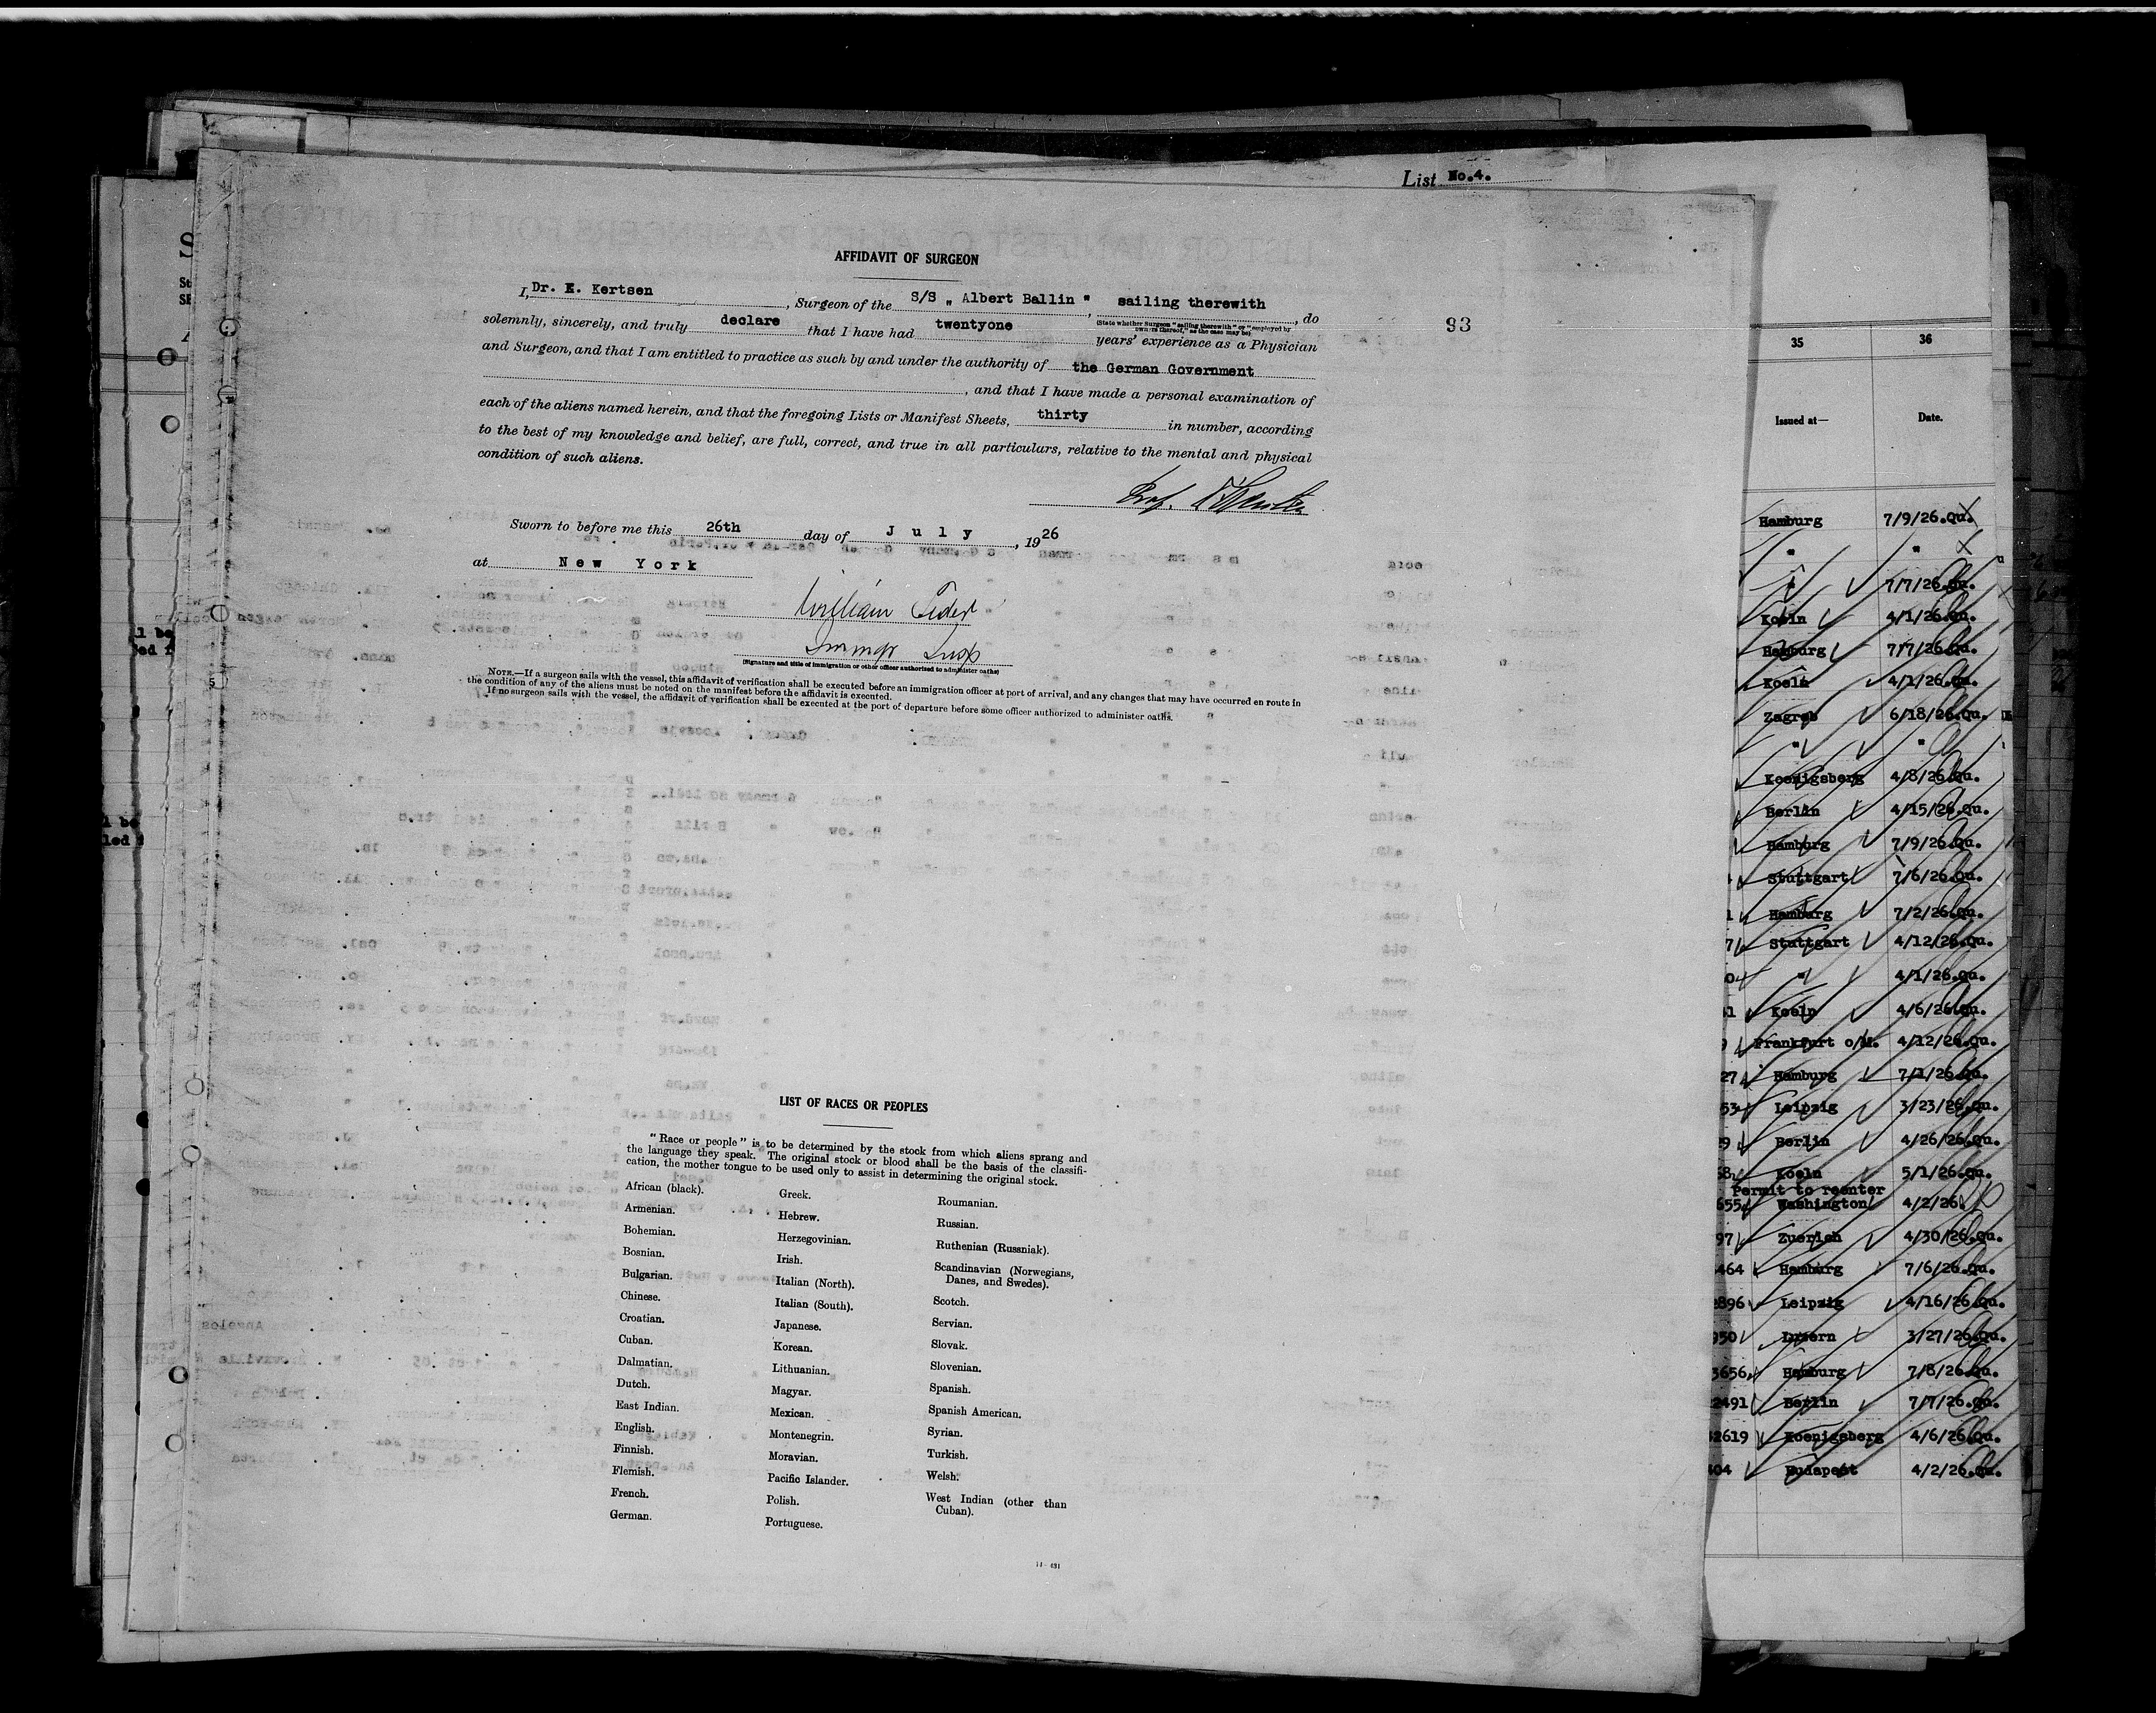 List No.4.
AFFIDAVIT OF SURGEON
I, Dr. E. Kertsen, Surgeon of the S/S „ Albert Ballin ", sailing therewith, do
(State whether Surgeon "sailing therewith" or "employed by owners thereof," as the case may be)
93
solemnly, sincerely, and truly declare that I have had twentyone years' experience as a Physician
and Surgeon, and that I am entitled to practice as such by and under the authority of the German Government
, and that I have made a personal examination of
each of the aliens named herein, and that the foregoing Lists or Manifest Sheets, thirty in number, according
to the best of my knowledge and belief, are full, correct, and true in all particulars, relative to the mental and physical
condition of such aliens.
Prof.
Sworn to before me this 26th day of July, 1926
at New York
William
Immigr Insp
(Signature and title of immigration or other officer authorized to administer oaths)
NOTE.—If a surgeon sails with the vessel, this affidavit of verification shall be executed before an immigration officer at port of arrival, and any changes that may have occurred en route in
the condition of any of the aliens must be noted on the manifest before the affidavit is executed.
If no surgeon sails with the vessel, the affidavit of verification shall be executed at the port of departure before some officer authorized to administer oaths.
LIST OF RACES OR PEOPLES
"Race or people" is to be determined by the stock from which aliens sprang and
the language they speak. The original stock or blood shall be the basis of the classifi-
cation, the mother tongue to be used only to assist in determining the original stock.
African (black).
Armenian.
Bohemian.
Bosnian.
Bulgarian.
Chinese.
Croatian.
Cuban.
Dalmatian.
Dutch.
East Indian.
English.
Finnish.
Flemish.
French.
German.
Greek.
Hebrew.
Herzegovinian.
Irish.
Italian (North).
Italian (South).
Japanese.
Korean.
Lithuanian.
Magyar.
Mexican.
Montenegrin.
Moravian.
Pacific Islander.
Polish.
Portuguese.
Roumanian.
Russian.
Ruthenian (Russniak).
Scandinavian (Norwegians,
Danes, and Swedes).
Scotch.
Servian.
Slovak.
Slovenian.
Spanish.
Spanish American.
Syrian.
Turkish.
Welsh.
West Indian (other than
Cuban).
35 36
Issued at— Date.
Hamburg 7/9/26.Qu.
" "
" 7/7/26.Qu.
Koeln 4/1/26.Qu.
Hamburg 7/7/26.Qu.
Koeln 4/1/26.Qu.
Zagreb 6/18/26.Qu.
" "
Koenigsberg 4/8/26.Qu.
Berlin 4/15/26.Qu.
Hamburg 7/9/26.Qu.
Stuttgart 7/6/26.Qu.
1 Hamburg 7/2/26.Qu.
7 Stuttgart 4/12/26.Qu.
0 " 4/1/26.Qu.
1 Koeln 4/6/26.Qu.
9 Frankfurt o/M. 4/12/26.Qu.
27 Hamburg 7/1/26.Qu.
53 Leipzig 3/23/26.Qu.
9 Berlin 4/26/26.Qu.
8 Koeln 5/1/26.Qu.
Permit to reenter
655 Washington 4/2/26.
97 Zuerich 4/30/26.Qu.
464 Hamburg 7/6/26.Qu.
2896 Leipzig 4/16/26.Qu.
950 Luzern 3/27/26.Qu.
3656 Hamburg 7/8/26.Qu.
2491 Berlin 7/7/26.Qu.
2619 Koenigsberg 4/6/26.Qu.
404 Budapest 4/2/26.Qu.